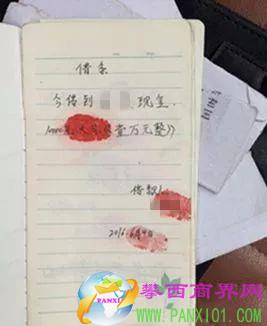 借条
今借到 现金
壹万元整))
借款人
2016.6月9日
PANXI
攀西商界网
WWW.PANXI01.COM